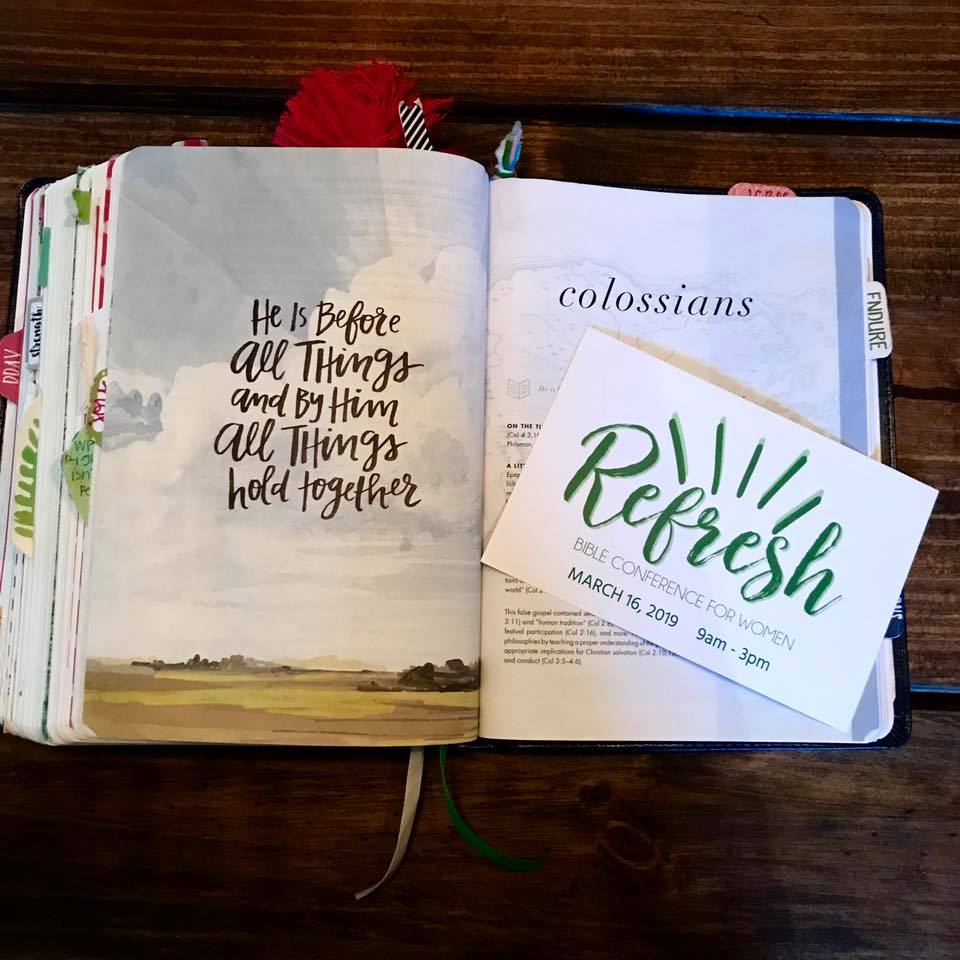 He Is Before
All Things
and By Him
All Things
hold together
colossians
He is
ON THE TI
(Col 4:3,
Philemon,
A LIT
Epap
world" (Col 2:
This false gospel contained
3:11) and "human tradition" (Col 2:8
festival participation (Col 2:16), and more.
philosophies by teaching a proper understanding of
appropriate implications for Christian salvation (Col 2:10,
and conduct (Col 3:5–4:6).
Refresh
BIBLE CONFERENCE FOR WOMEN
MARCH 16, 2019 9am - 3pm
ENDURE
strength